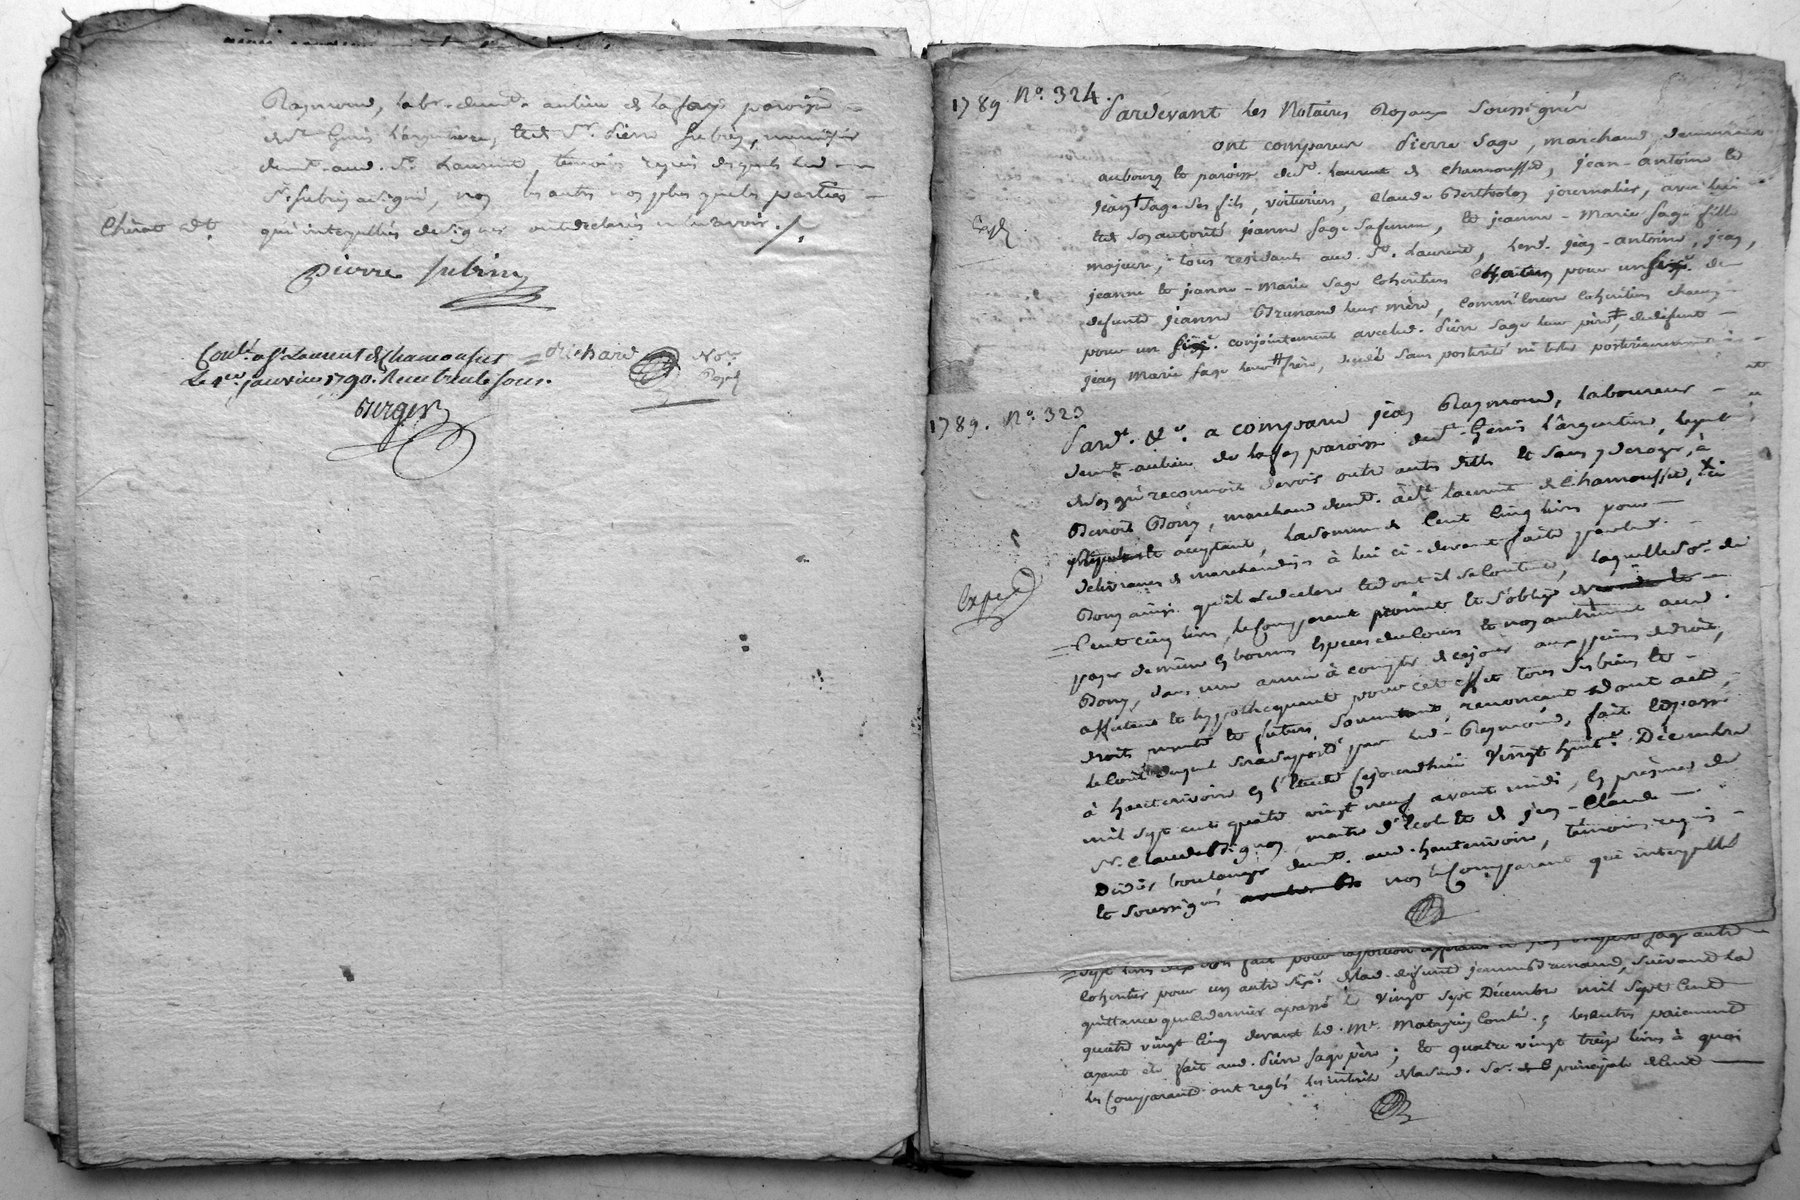 Raymond, labr. demt. au lieu de la fay paroisse
de st. Genis l'argentiere, et de sr. pierre Subrin,
demt. aud. st. Laurent temoins requis desquels led.
sr. Subrin a signé, non les autres non plus que les parties
qui interpellés de signer ont declaré ne le savoir ./.
pierre subrin
Conlé. a st Laurent de Chamousset
Le 1er. janvier 1790. Recu trente sous.
Berger
Richard
Nore.
Royal
1789 No. 324.
Pardevant les Notaires Royaux soussignés
ont comparu pierre Sage, marchand, demeurant
au bourg et paroisse de st. Laurent de chamousset, jean-antoine et
jean Sage ses fils, voituriers, Claude Bertholon journalier, avec lui
et de son autorité jeanne Sage sa femme, et jeanne-Marie Sage fille
majeure, tous residants aud. st. Laurent, lesd. jean-antoine, jean,
jeanne et jeanne-Marie Sage cohéritiers pour un de
defunte jeanne Brunand leur mère, comm'encore cohéritiers chacun
pour un conjointement avec led. pierre Sage leur père, de defunt
jean Marie Sage leur frère, decédé sans posterité
1789. No. 323
Pardt. &c. a comparu jean Raymond, laboureur
demt. au lieu de la fay paroisse de st. Genis l'argentiere, lequel
de son gré reconnoit devoir outre autre dette et sans y deroger, à
Benoit Bony, marchand demt. à st. laurent de Chamousset, ici
acceptant, la somme de Cent Cinq livres pour
delivrance de marchandises à lui ci-devant faite par led.
Bony ainsi qu'il le declare et dont il se contente, laquelle so. de
Cent cinq livres, le Comparant promet et s'oblige de
payer de même en bonnes especes de cours et non autrement aud.
Bony, dans une année à compter de ce jour aux peines de droit,
affectant et hypothequant pour cet effet tous ses biens et
droits presents et futurs, soumettant, renoncant dont acte,
le Cout duquel sera suporté par led. Raymond, fait et passé
à hauterivoire en l'Etude Cejourdhui vingt huit Décembre
mil sept cent quatre vingt neuf avant midi, en présence de
sr. Claude Vignon, maitre d'Ecole et de jean-Claude
boulanger demt. aud. hauterivoire, témoins requis
et soussignés non le Comparant qui interpellé
cohéritier pour un autre de lad. defunte jeanne Brunand, suivant la
quittance que ce dernier a passé le vingt sept Décembre mil sept Cent
quatre vingt Cinq devant led. Me. ; les autres paiement
ayant été fait aud. pierre Sage père ; et quatre vingt treize livres à quoi
les Comparants ont reglé les interets de lad. so. principale de Cent
Exped